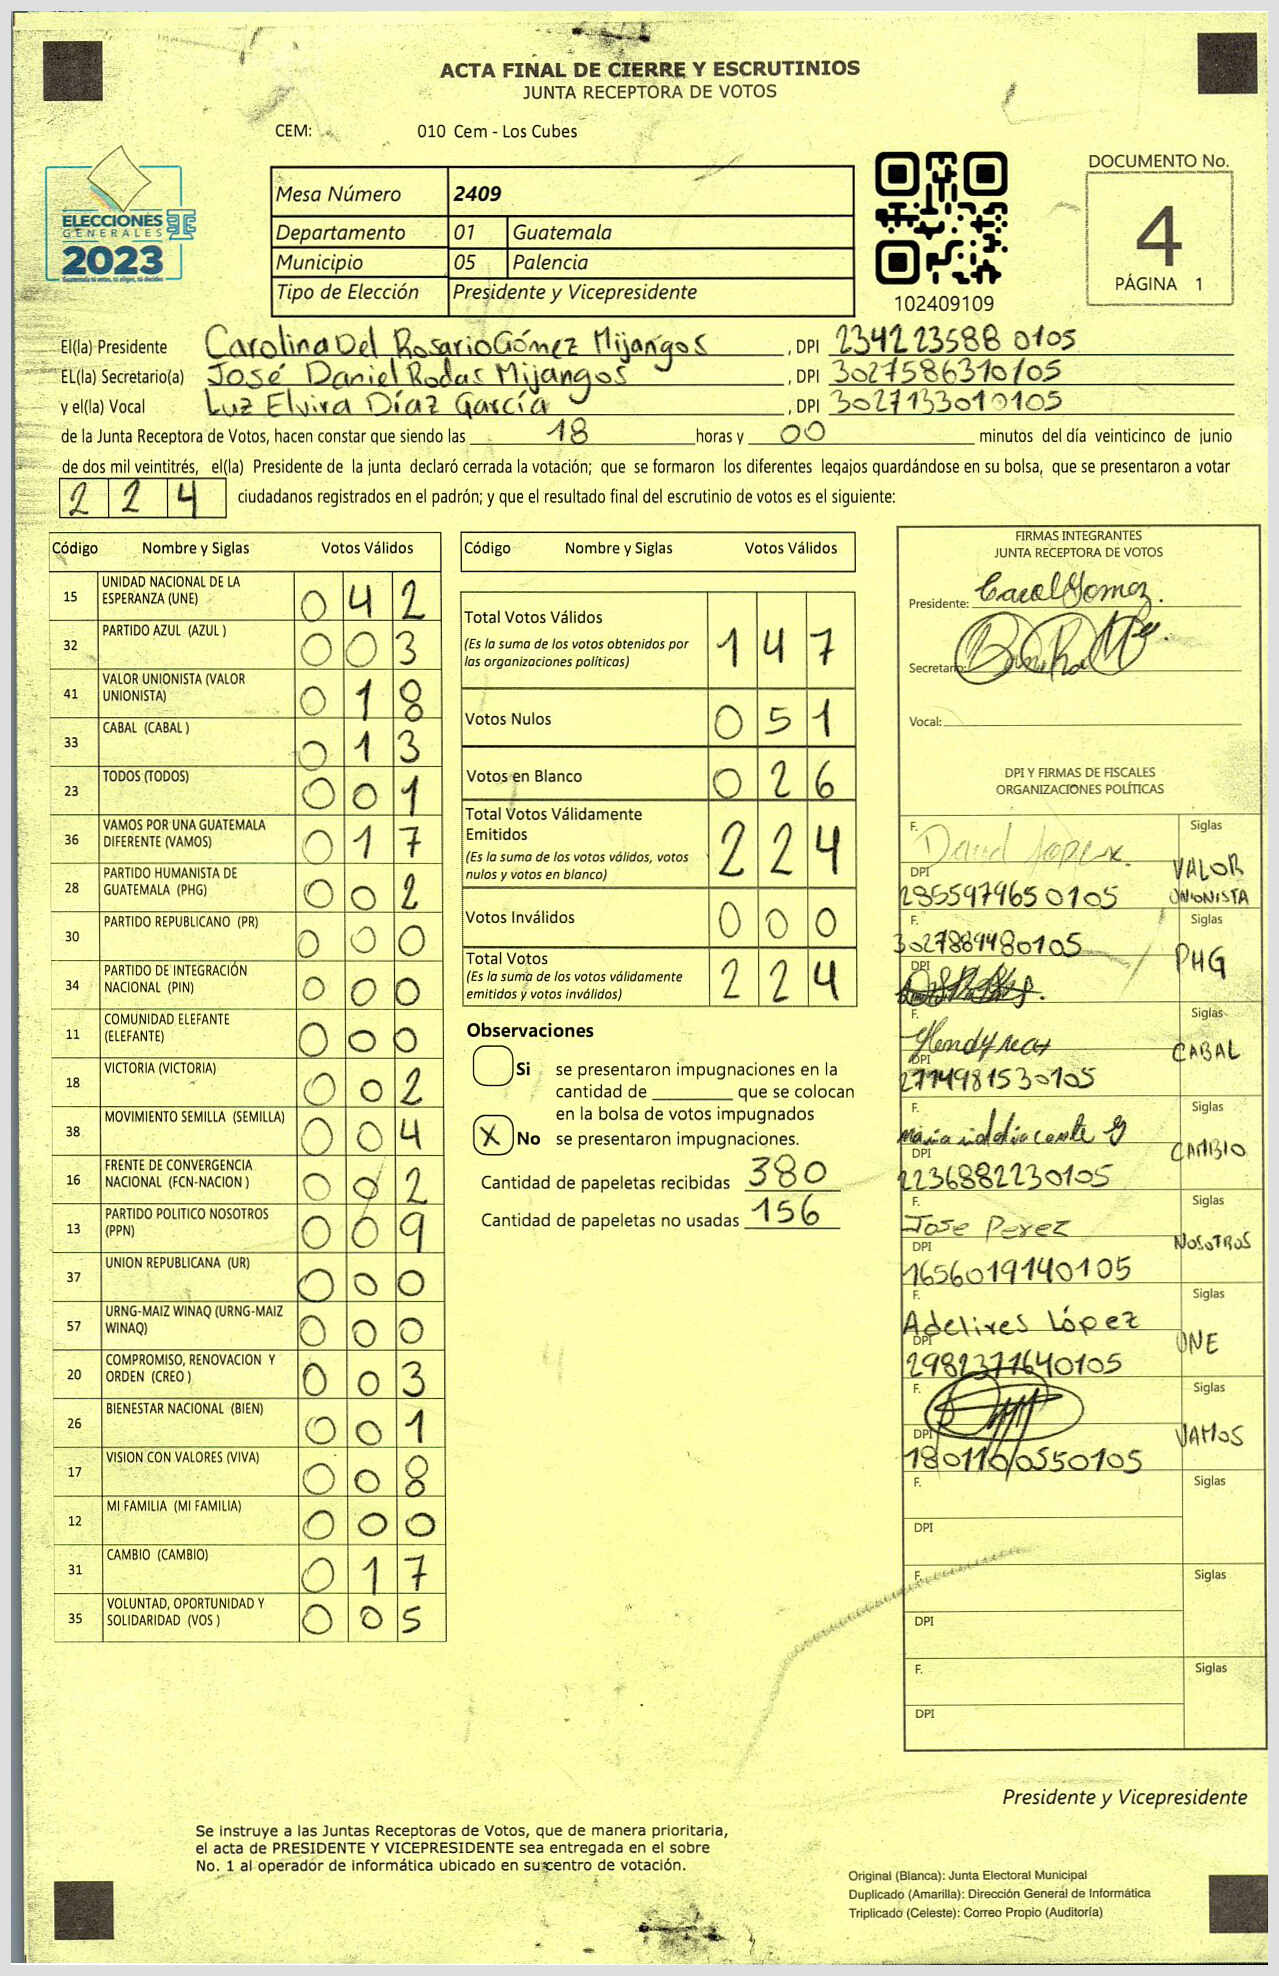 ACTA FINAL DE CIERRE Y ESCRUTINIOS
JUNTA RECEPTORA DE VOTOS
CEM: 010 Cem - Los Cubes
ELECCIONES
GENERALES
2023
Mesa Número 2409
Departamento 01 Guatemala
Municipio 05 Palencia
Tipo de Elección Presidente y Vicepresidente
102409109
DOCUMENTO No.
4
PÁGINA 1
El(la) Presidente Carolina Del Rosario Gómez Mijangos, DPI 234223588 0105
EL(la) Secretario(a) José Daniel Rodas Mijangos, DPI 3027586310105
y el(la) Vocal Luz Elvira Díaz García, DPI 3027133010105
de la Junta Receptora de Votos, hacen constar que siendo las 18 horas y 00 minutos del día veinticinco de junio
de dos mil veintitrés, el(la) Presidente de la junta declaró cerrada la votación; que se formaron los diferentes legajos guardándose en su bolsa, que se presentaron a votar
224 ciudadanos registrados en el padrón; y que el resultado final del escrutinio de votos es el siguiente:
Código Nombre y Siglas Votos Válidos
15 UNIDAD NACIONAL DE LA ESPERANZA (UNE) 042
32 PARTIDO AZUL (AZUL ) 003
41 VALOR UNIONISTA (VALOR UNIONISTA) 018
33 CABAL (CABAL ) 013
23 TODOS (TODOS) 001
36 VAMOS POR UNA GUATEMALA DIFERENTE (VAMOS) 017
28 PARTIDO HUMANISTA DE GUATEMALA (PHG) 002
30 PARTIDO REPUBLICANO (PR) 000
34 PARTIDO DE INTEGRACIÓN NACIONAL (PIN) 000
11 COMUNIDAD ELEFANTE (ELEFANTE) 000
18 VICTORIA (VICTORIA) 002
38 MOVIMIENTO SEMILLA (SEMILLA) 004
16 FRENTE DE CONVERGENCIA NACIONAL (FCN-NACION ) 002
13 PARTIDO POLITICO NOSOTROS (PPN) 009
37 UNION REPUBLICANA (UR) 000
57 URNG-MAIZ WINAQ (URNG-MAIZ WINAQ) 000
20 COMPROMISO, RENOVACION Y ORDEN (CREO ) 003
26 BIENESTAR NACIONAL (BIEN) 001
17 VISION CON VALORES (VIVA) 008
12 MI FAMILIA (MI FAMILIA) 000
31 CAMBIO (CAMBIO) 017
35 VOLUNTAD, OPORTUNIDAD Y SOLIDARIDAD (VOS ) 005
Código Nombre y Siglas Votos Válidos
Total Votos Válidos 147
(Es la suma de los votos obtenidos por
las organizaciones políticas)
Votos Nulos 051
Votos en Blanco 026
Total Votos Válidamente
Emitidos 224
(Es la suma de los votos válidos, votos
nulos y votos en blanco)
Votos Inválidos 000
Total Votos 224
(Es la suma de los votos válidamente
emitidos y votos inválidos)
Observaciones
Si se presentaron impugnaciones en la
cantidad de ________ que se colocan
en la bolsa de votos impugnados
X No se presentaron impugnaciones.
Cantidad de papeletas recibidas 380
Cantidad de papeletas no usadas 156
FIRMAS INTEGRANTES
JUNTA RECEPTORA DE VOTOS
Presidente: Carol Gomez.
Secretario:
Vocal:
DPI Y FIRMAS DE FISCALES
ORGANIZACIONES POLÍTICAS
F. David Siglas
DPI 2855979650105 VALOR UNIONISTA
F. 3027889480105 Siglas
DPI PHG
F. Siglas
DPI 2774981530105 CABAL
F. Siglas
DPI 2236882230105 CAMBIO
F. Jose Perez Siglas
DPI 1656019140105 NOSOTROS
F. Adelires López Siglas
DPI 2982371640105 UNE
F. Siglas
DPI 1801100550105 VAMOS
F. Siglas
DPI
F. Siglas
DPI
F. Siglas
DPI
Presidente y Vicepresidente
Se instruye a las Juntas Receptoras de Votos, que de manera prioritaria,
el acta de PRESIDENTE Y VICEPRESIDENTE sea entregada en el sobre
No. 1 al operador de informática ubicado en su centro de votación.
Original (Blanca): Junta Electoral Municipal
Duplicado (Amarilla): Dirección General de Informática
Triplicado (Celeste): Correo Propio (Auditoría)